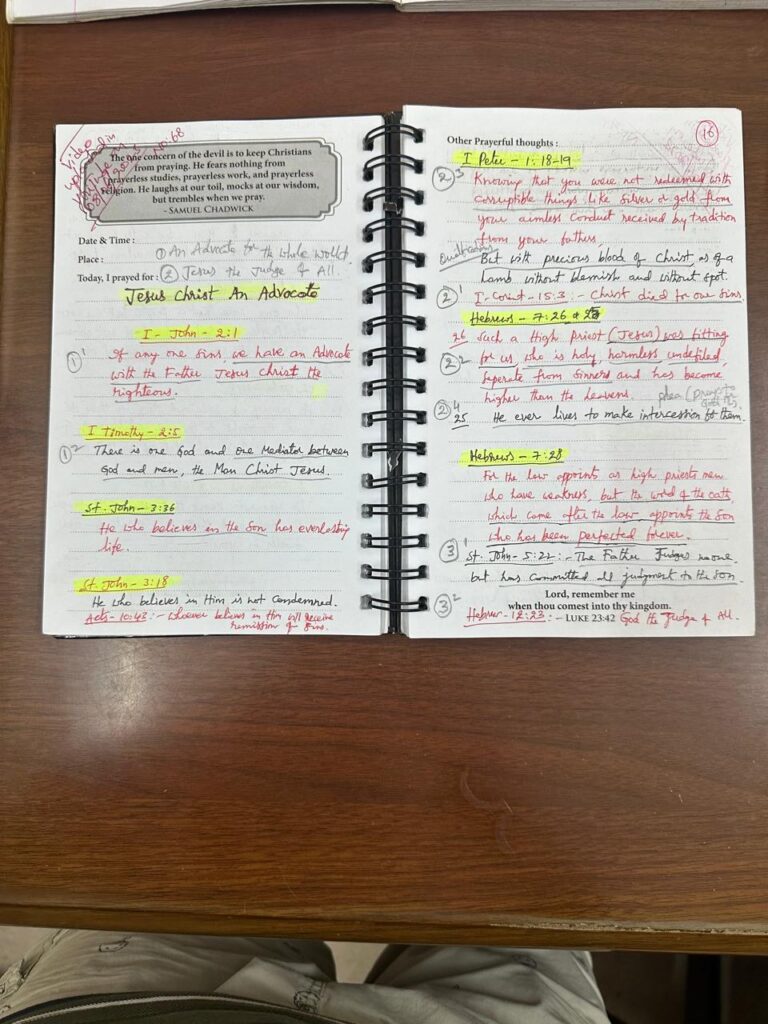 Video
uploaded in
No: 68
The one concern of the devil is to keep Christians
from praying. He fears nothing from
prayerless studies, prayerless work, and prayerless
religion. He laughs at our toil, mocks at our wisdom,
but trembles when we pray.
- SAMUEL CHADWICK
Date & Time :
Place : ① An Advocate for the whole world.
Today, I prayed for : ② Jesus the Judge of All.
Jesus Christ An Advocate
I - John - 2:1
① 1 If any one Sins, we have an Advocate
with the Father Jesus Christ the
righteous.
I Timothy - 2:5
① 2 There is one God and one Mediator between
God and men, the Man Christ Jesus.
St. John - 3:36
He who believes in the Son has everlasting
life.
St. John - 3:18
He who believes in Him is not Condemned.
Acts - 10:43 :- Whoever believes in Him will receive
remission of Sins.
16
Other Prayerful thoughts :
I Peter - 1:18-19
② 3 Knowing that you were not redeemed with
corruptible things, like Silver or gold from
your aimless Conduct received by tradition
from your fathers,
But with precious blood of Christ, as of a
Lamb without blemish and without spot.
② 1 I - Corint - 15:3 :- Christ died for our Sins
Hebrews - 7:26 &
26 Such a High Priest (Jesus) was fitting
② 2 for us, who is holy, harmless, undefiled,
Seperate from Sinners and has become
higher than the heavens. plea (Pray to
② 4
25 He ever lives to make intercession for them.
Hebrews - 7:28
For the law appoints as high priests men
who have weakness, but the word of the oath,
which came after the law, appoints the Son
who has been perfected forever.
③ 1 St. John - 5:22 :- The Father Judges no one
but has Committed all judgment to the Son
Lord, remember me
when thou comest into thy kingdom.
③ 2 Hebrew - 12:23 :- – LUKE 23:42 God the Judge of All.